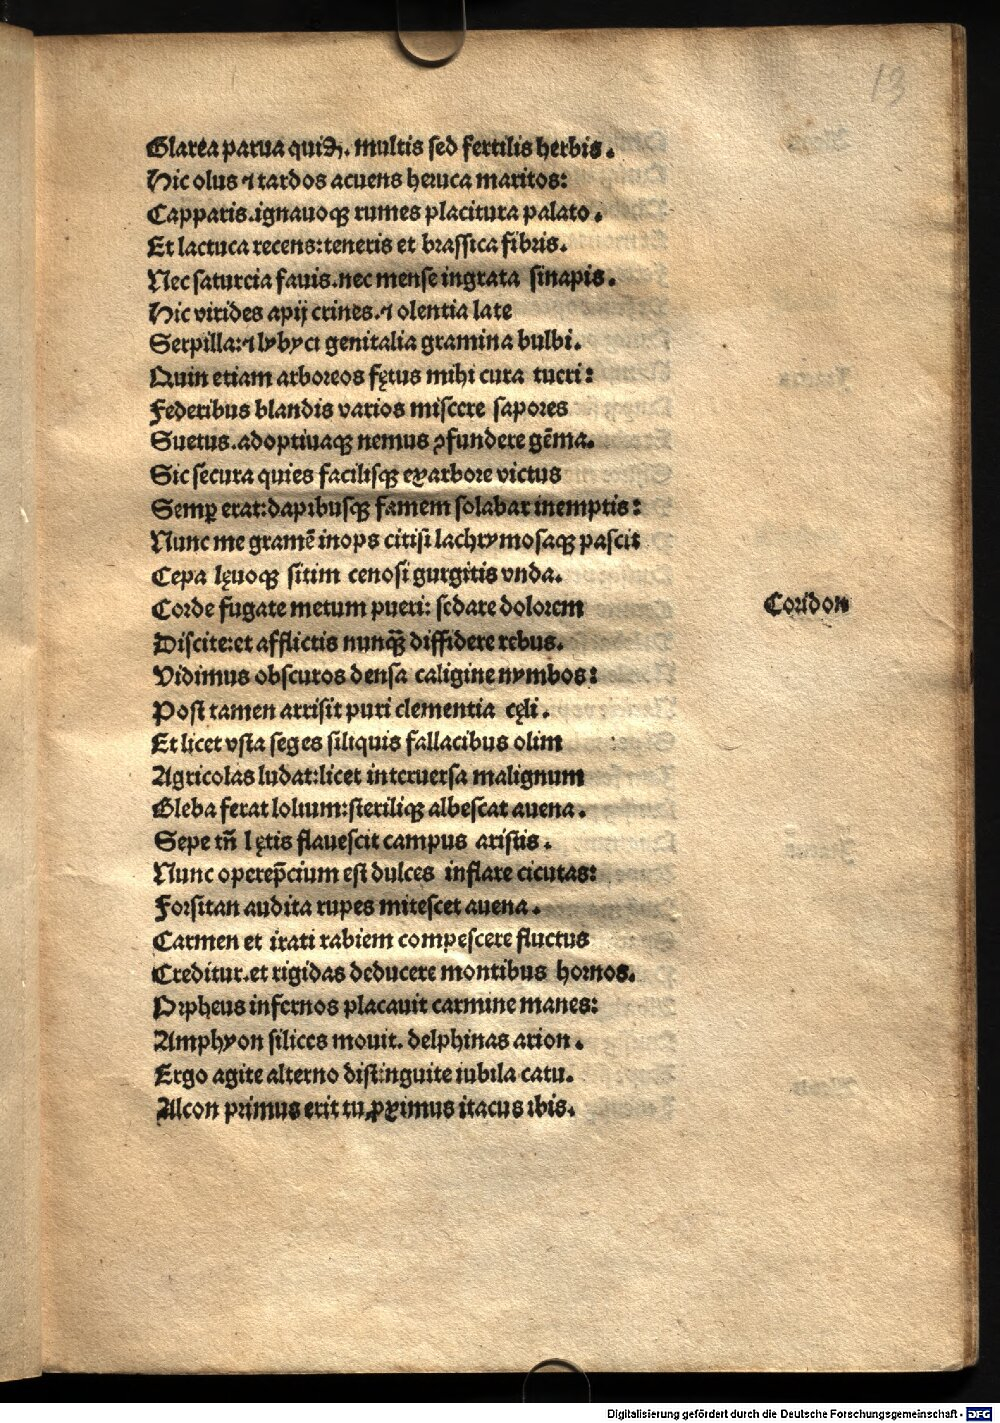 13
Glarea parua quiꝺ. multis sed fertilis herbis.
Hic olus ⁊ tardos acuens heruca maritos:
Capparis.ignauoqꝫ rumes placitura palato.
Et lactuca recens:teneris et brassica fibris.
Nec saturcia fauis.nec mense ingrata sinapis.
Hic virides apij crines.⁊ olentia late
Serpilla:⁊ lybyci genitalia gramina bulbi.
Quin etiam arboreos fętus mihi cura tueri:
Federibus blandis varios miscere sapores
Suetus.adoptiuaqꝫ nemus ꝓfundere gēma.
Sic secura quies facilisqꝫ ex arbore victus
Semꝑ erat:dapibusqꝫ famem solabar inemptis:
Nunc me gramē inops citisi lachrymosaqꝫ pascit
Cepa lęuoqꝫ sitim cenosi gurgitis vnda.
Corde fugate metum pueri: sedate dolorem
Coridon
Discite:et afflictis nunqꝫ̄ diffidere rebus.
Vidimus obscuros densa caligine nymbos:
Post tamen arrisit puri clementia cęli.
Et licet vsta seges siliquis fallacibus olim
Agricolas ludat:licet interuersa malignum
Gleba ferat lolium:steriliqꝫ albescat auena.
Sepe tn̄ lętis flauescit campus aristis.
Nunc operep̄cium est dulces inflare cicutas:
Forsitan audita rupes mitescet auena.
Carmen et irati rabiem compescere fluctus
Creditur.et rigidas deducere montibus hornos.
Orpheus infernos placauit carmine manes:
Amphyon silices mouit. delphinas arion.
Ergo agite alterno distinguite iubila catu.
Alcon primus erit tu ꝓximus itacus ibis.
Digitalisierung gefördert durch die Deutsche Forschungsgemeinschaft - DFG